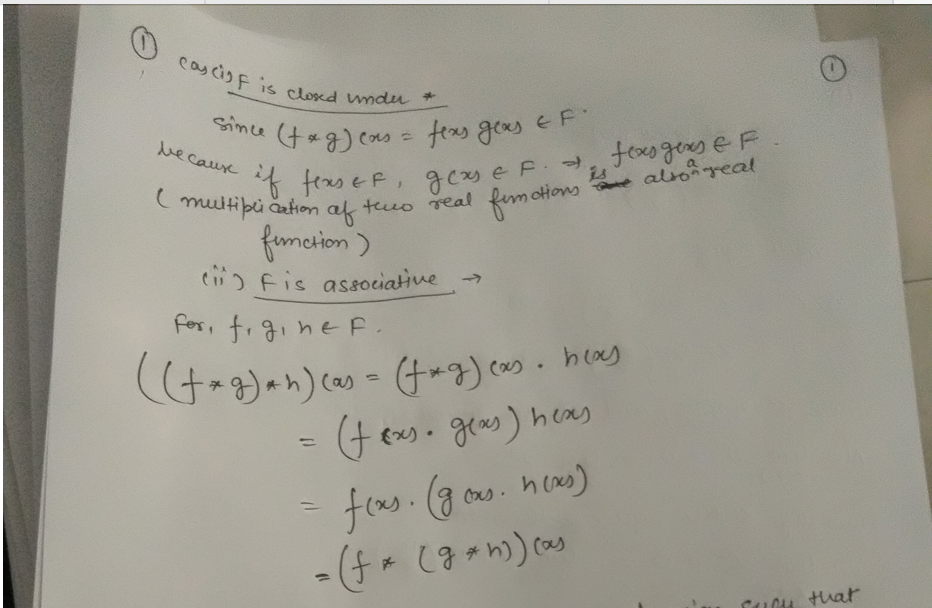 ①
①
(a) (i) F is closed under *
since (f * g)(x) = f(x) g(x) ∈ F.
because if f(x) ∈ F, g(x) ∈ F. → f(x) g(x) ∈ F.
(multiplication of two real functions is also a real
function)
(ii) F is associative →
For, f, g, h ∈ F.
((f * g) * h)(x) = (f * g)(x) . h(x)
= (f(x) . g(x)) h(x)
= f(x) . (g(x) . h(x))
= (f * (g * h))(x)
such that